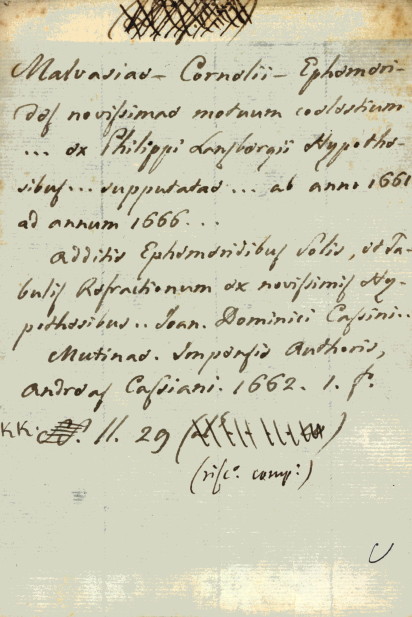 Malvasiae – Cornelii – Ephemeri-
des novissimae motuum coelestium
... ex Philippi Lansbergii Hypothe-
sibus... supputatae ... ab anno 1661
ad annum 1666...
Additis Ephemeridibus Solis, et Ta-
bulis Refractionum ex novissimis Hy-
pothesibus.. Ioan. Dominici Cassini..
Mutinae. Impensis Authoris,
Andreas Cassiani. 1662. 1. f.
KK. II. 29
(risc.º comp:)